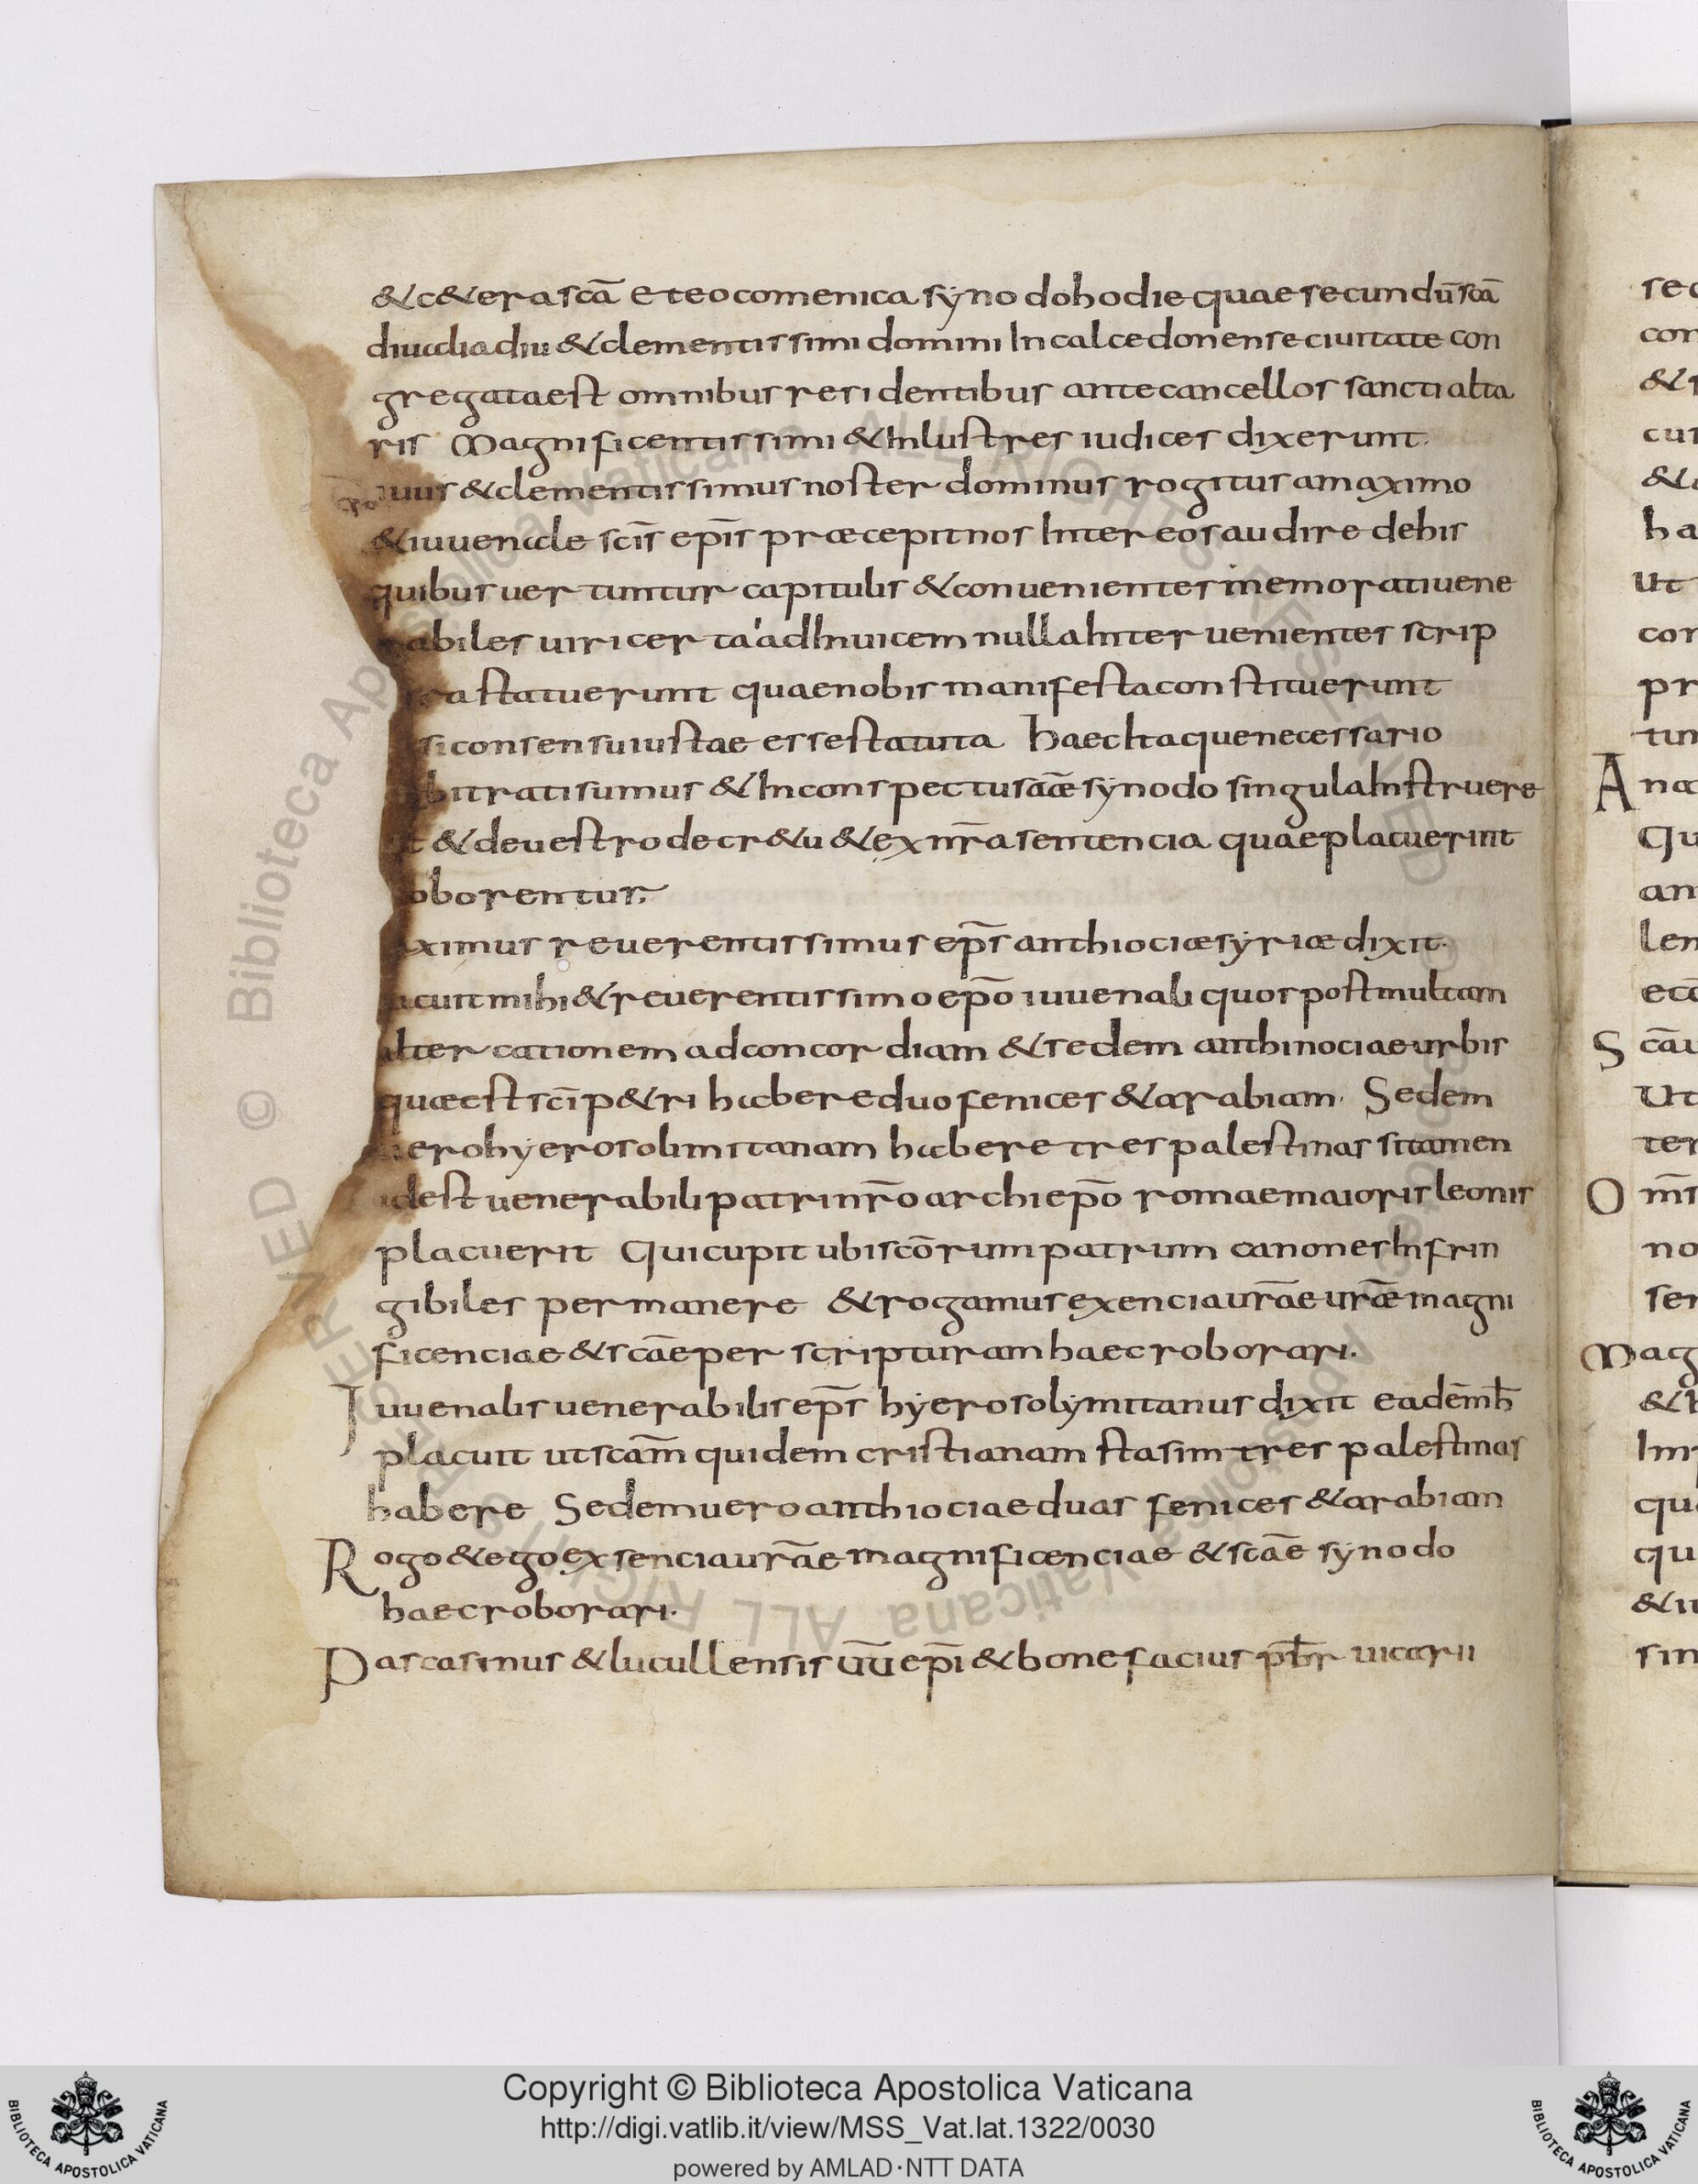 &c&era scā eteocomenica sýnodo hodie quae secundū scā
diualia diu & clementissimi domini In calcedonense ciuitate con
gregata est omnibus residentibus ante cancellos sancti alta
ris Magnificentissimi & Inlustres iudices dixerunt.
iuus & clementissimus noster dominus rogitus amaximo
& iuuenale scīs ep̄is præcepit nos Inter eos audire dehis
quibus uertuntur capitulis & conuenientes memorati uene
rabiles uiri certa ad Inuicem nulla Interuenientes scrip
ra statuerunt quae nobis manifesta constituerunt
si consensu iustae esse statuta haec Itaque necessario
bitrati sumus & In conspectu scāæ sýnodo singula Instruere
t & de uestro decr&u & ex nr̄a sentencia quae placuerint
oborentur;
ximus reuerentissimus ep̄s anthiociæ sýriæ dixit.
acuit mihi & reuerentissimo ep̄o iuuenali quos post multam
alter cationem ad concordiam & sedem anthinociae urbis
quæ est scī p&ri habere duo fenices & arabiam. Sedem
uero hýerosolimitanam habere tres palestinas si tamen
idest uenerabili patri nr̄o archiep̄o romae maioris leonis
placuerit Qui cupit ubi scōrum patrum canones Infrin
gibiles permanere & rogamus exencia ur̄ae ur̄æ magni
ficenciae & scāe per scripturam haec roborari.
Iuuenalis uenerabilis ep̄s hýerosolýmitanus dixit eadēmh̄
placuit ut scām quidem cristianam stasim tres palestinas
habere Sedem uero anthiociae duas fenices & arabiam
Rogo & ego exsencia ur̄ae magnificenciae & scāe sýnodo
haec roborari.
Pascasinus & lucullensis ūū ep̄i & bonefacius pb̄r uicarii
sec
con
& s
cur
&
ha
ut
con
pr
tun
A næ
Qu
am
len
S cāu
Ut
ter
O m̄s
no
sen
Mag
Imp
qu
qu
& u
sin
Copyright © Biblioteca Apostolica Vaticana
http://digi.vatlib.it/view/MSS_Vat.lat.1322/0030
powered by AMLAD·NTT DATA
BIBLIOTECA APOSTOLICA VATICANA
BIBLIOTECA APOSTOLICA VATICANA
© Biblioteca Apostolica Vaticana ALL RIGHTS RESERVED
© Biblioteca Apostolica Vaticana ALL RIGHTS RESERVED